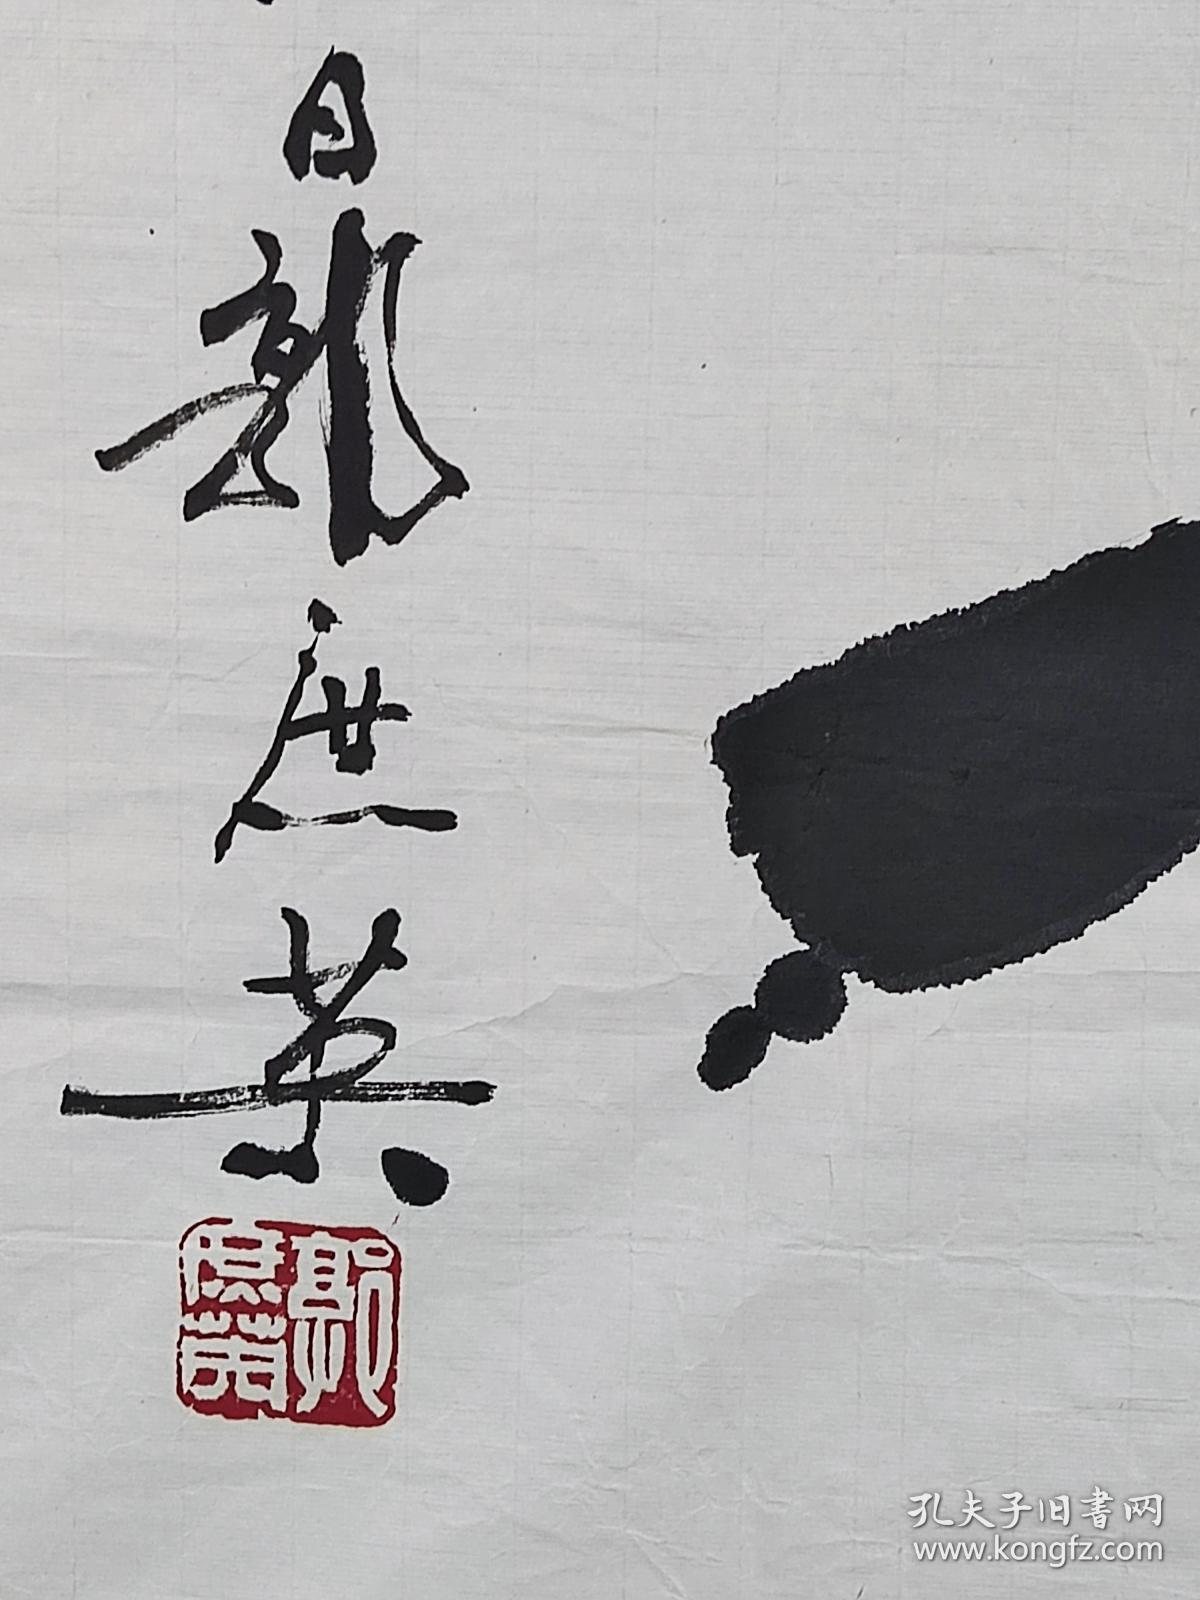 日郭庶英
郭庶英
孔夫子旧书网
www.kongfz.com